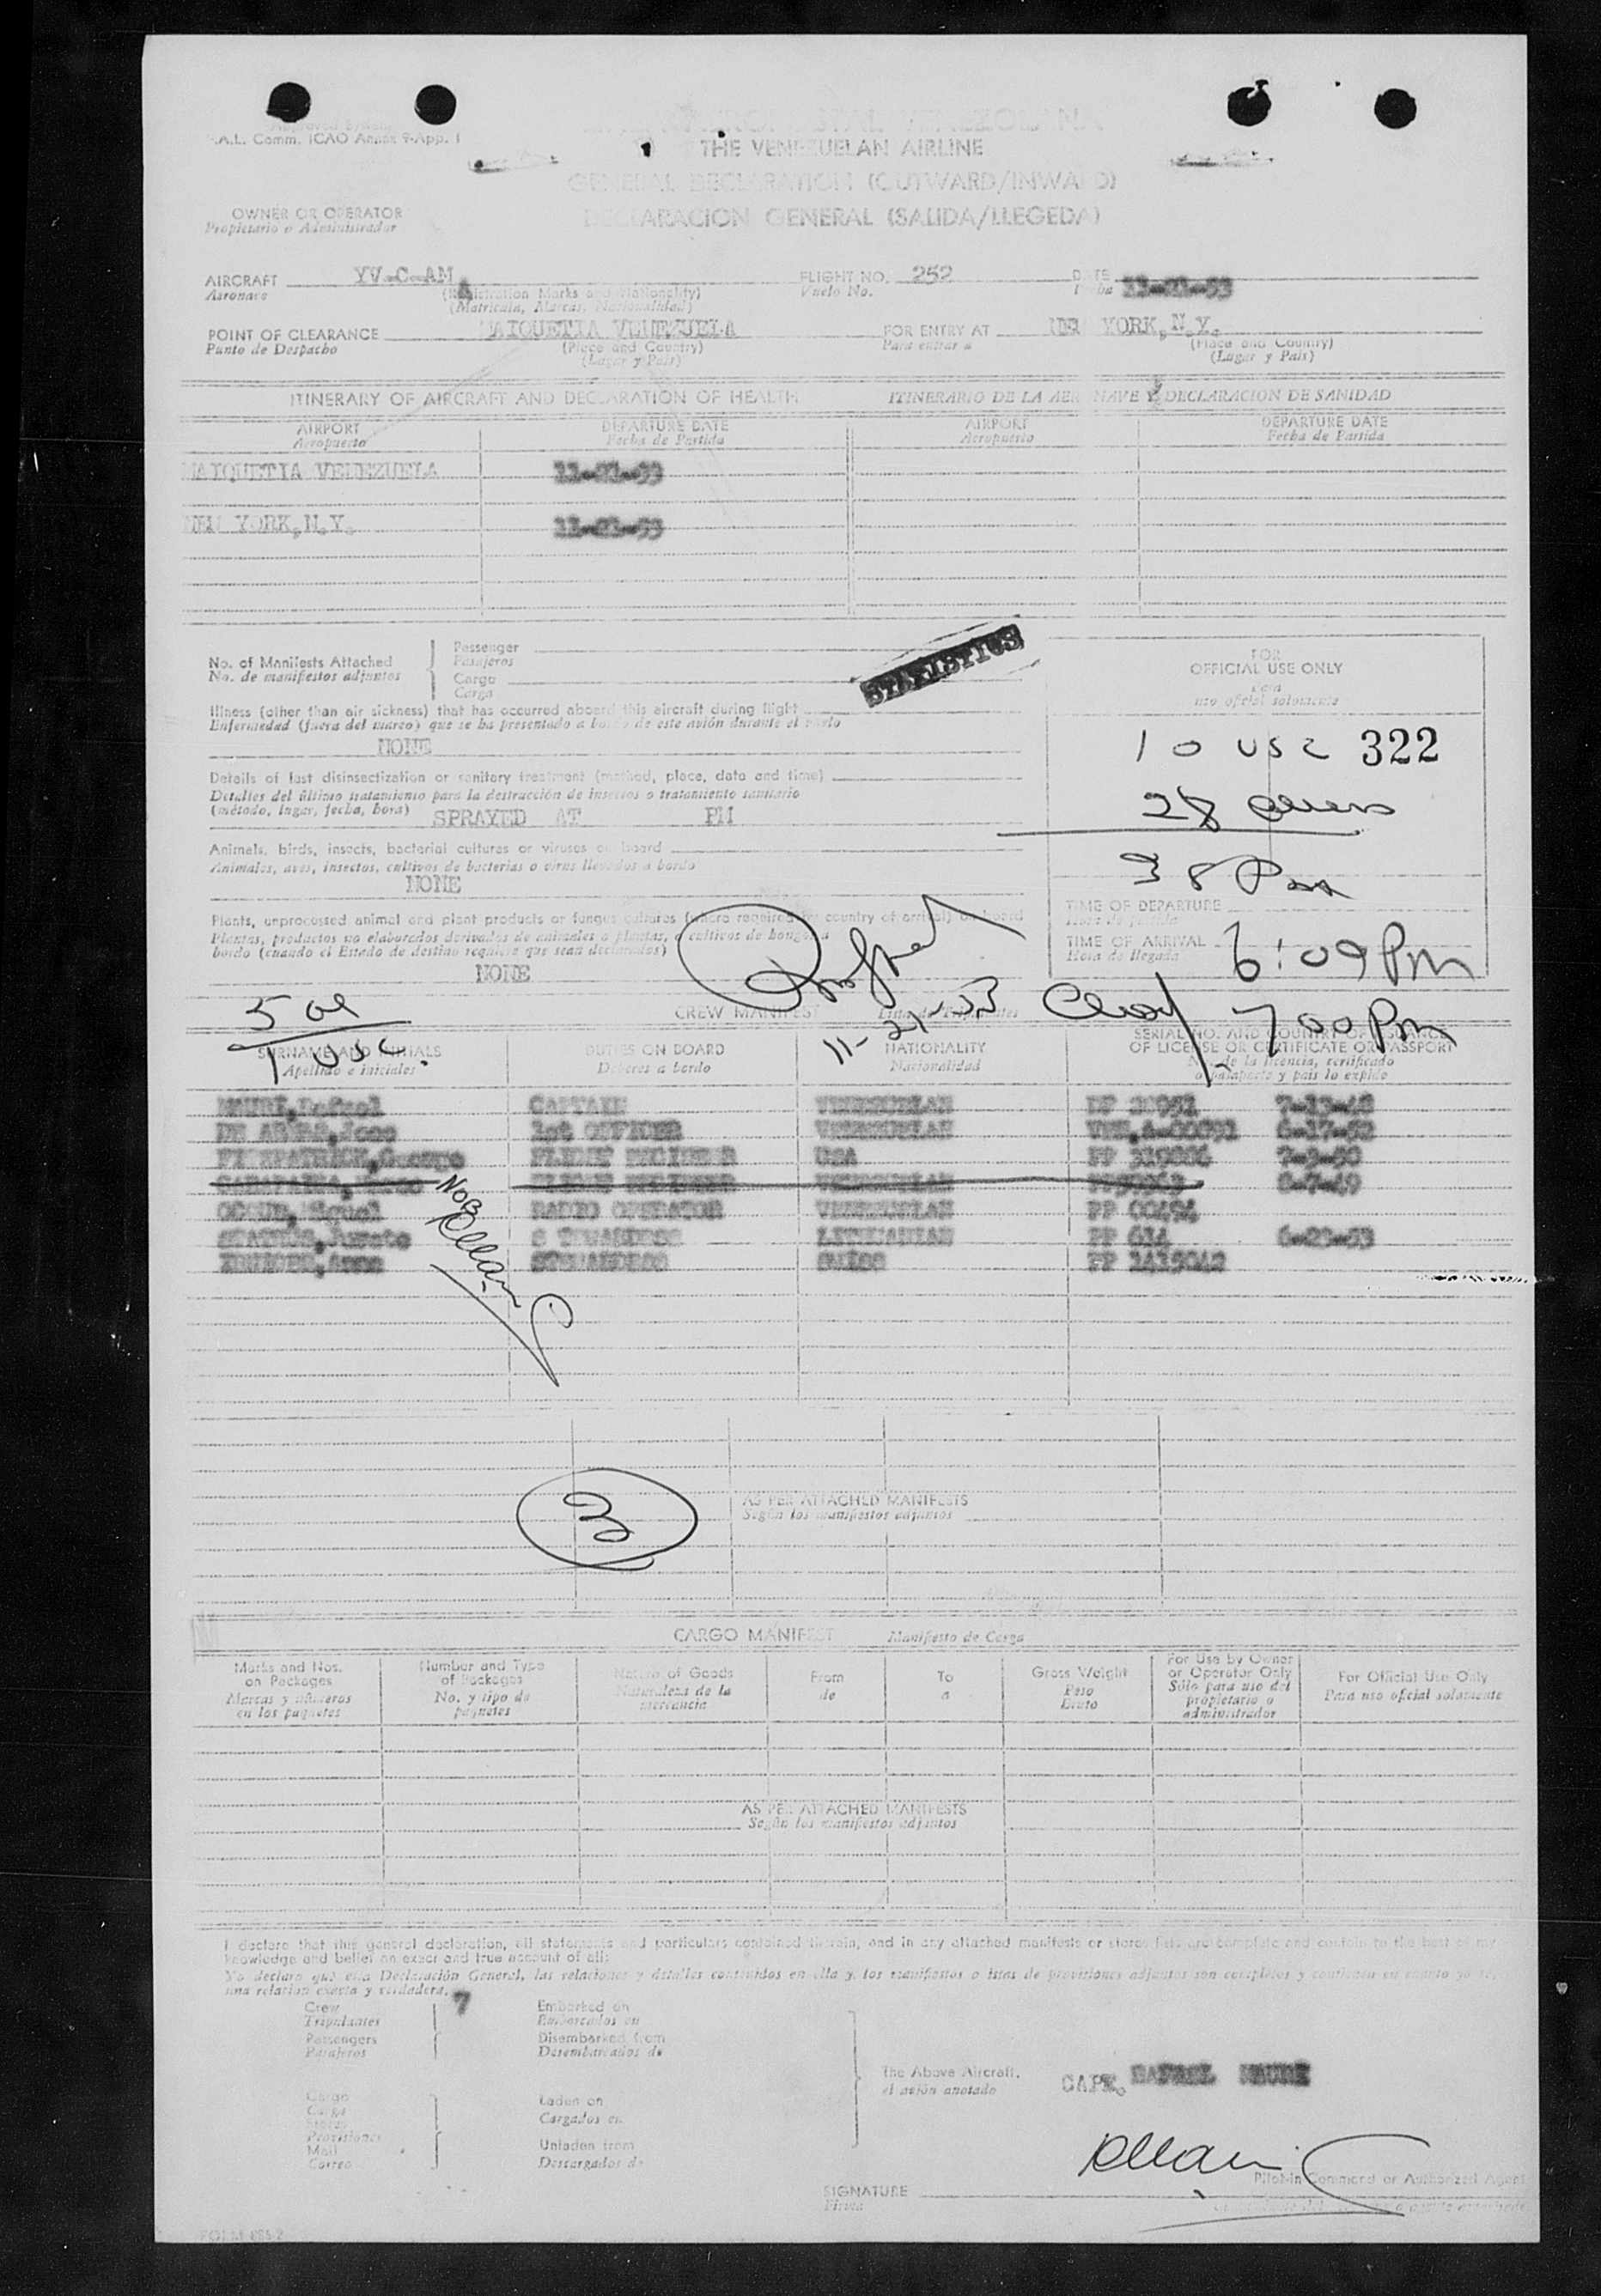 Approved System
F.A.L. Comm. ICAO Annex 9-App. 1
THE VENEZUELAN AIRLINE
GENERAL DECLARATION (OUTWARD/INWARD)
DECLARACION GENERAL (SALIDA/LLEGEDA)
OWNER OR OPERATOR
Propietario o Administrador
AIRCRAFT YV-C-AM FLIGHT NO. 252 DATE 11-21-53
Aeronave (Registration Marks and Nationality) Vuelo No.
(Matricula, Marcas, Nacionalidad)
POINT OF CLEARANCE MAIQUETIA VENEZUELA FOR ENTRY AT NEW YORK, N.Y.
Punto de Despacho (Place and Country) Para entrar a (Place and Country)
(Lugar y Pais) (Lugar y Pais)
ITINERARY OF AIRCRAFT AND DECLARATION OF HEALTH ITINERARIO DE LA AERONAVE Y DECLARACION DE SANIDAD
AIRPORT DEPARTURE DATE AIRPORT DEPARTURE DATE
Aeropuerto Fecha de Partida Aeropuerto Fecha de Partida
MAIQUETIA VENEZUELA 11-21-53
NEW YORK, N.Y. 11-21-53
STATISTICS
No. of Manifests Attached
No. de manifiestos adjuntos
Passenger
Pasajeros
Cargo
Carga
Illness (other than air sickness) that has occurred aboard this aircraft during flight
Enfermedad (fuera del mareo) que se ha presentado a bordo de este avión durante el vuelo
NONE
Details of last disinsectization or sanitary treatment (method, place, date and time)
Detalles del último tratamiento para la destrucción de insectos o tratamiento sanitario
(método, lugar, fecha, hora) SPRAYED AT PM
Animals, birds, insects, bacterial cultures or viruses on board
Animales, aves, insectos, cultivos de bacterias o virus llevados a bordo
NONE
Plants, unprocessed animal and plant products or fungus cultures (where required by country of arrival) on board
Plantas, productos no elaborados derivados de animales o plantas, o cultivos de hongos a
bordo (cuando el Estado de destino requiere que sean declarados)
NONE
FOR
OFFICIAL USE ONLY
Para
uso oficial solamente
10 USC 322
28 aliens
38 Pax
TIME OF DEPARTURE
Hora de partida
TIME OF ARRIVAL 6:09 Pm
Hora de llegada
11-21-53 Clear 700 Pm
5 al
1 USC.
CREW MANIFEST
SURNAME AND INITIALS DUTIES ON BOARD NATIONALITY SERIAL NO. AND COUNTRY OF ISSUANCE
OF LICENSE OR CERTIFICATE OR PASSPORT
Apellido e iniciales Deberes a bordo Nacionalidad No. de la licencia, certificado
o pasaporte y pais lo expide
MAURI, Rafael CAPTAIN VENEZUELAN PP 7-13-48
1st OFFICER VENEZUELAN 6-17-52
FITZPATRICK, George FLIGHT ENGINEER USA PP
FLIGHT ENGINEER VENEZUELAN 8-7-49
RADIO OPERATOR VENEZUELAN PP 00494
STEWARDESS LITHUANIAN PP 614 6-23-53
STEWARDESS SUISS PP
NOB
3
AS PER ATTACHED MANIFESTS
Según los manifiestos adjuntos
CARGO MANIFEST Manifiesto de Carga
Marks and Nos.
on Packages
Marcas y números
en los paquetes
Number and Type
of Packages
No. y tipo de
paquetes
Nature of Goods
Naturaleza de la
mercancia
From
de
To
a
Gross Weight
Peso
Bruto
For Use by Owner
or Operator Only
Sólo para uso del
propietario o
administrador
For Official Use Only
Para uso oficial solamente
AS PER ATTACHED MANIFESTS
Según los manifiestos adjuntos
I declare that this general declaration, all statements and particulars contained therein, and in any attached manifests or stores lists are complete and contain to the best of my
knowledge and belief an exact and true account of all:
Yo declaro que esta Declaración General, las relaciones y detalles contenidos en ella y los manifiestos o listas de provisiones adjuntos son completos y contienen en cuanto yo sé,
una relation exacta y verdadera.
Crew 7
Tripulantes
Passengers
Pasajeros
Embarked on
Embarcados en
Disembarked from
Desembarcados de
Cargo
Carga
Stores
Provisiones
Mail
Correo
Laden on
Cargados en
Unladen from
Descargados de
The Above Aircraft.
el avión anotado
CAPT. RAFAEL MAURI
SIGNATURE
Firma
Pilot-in Command or Authorized Agent
FORM 885-2